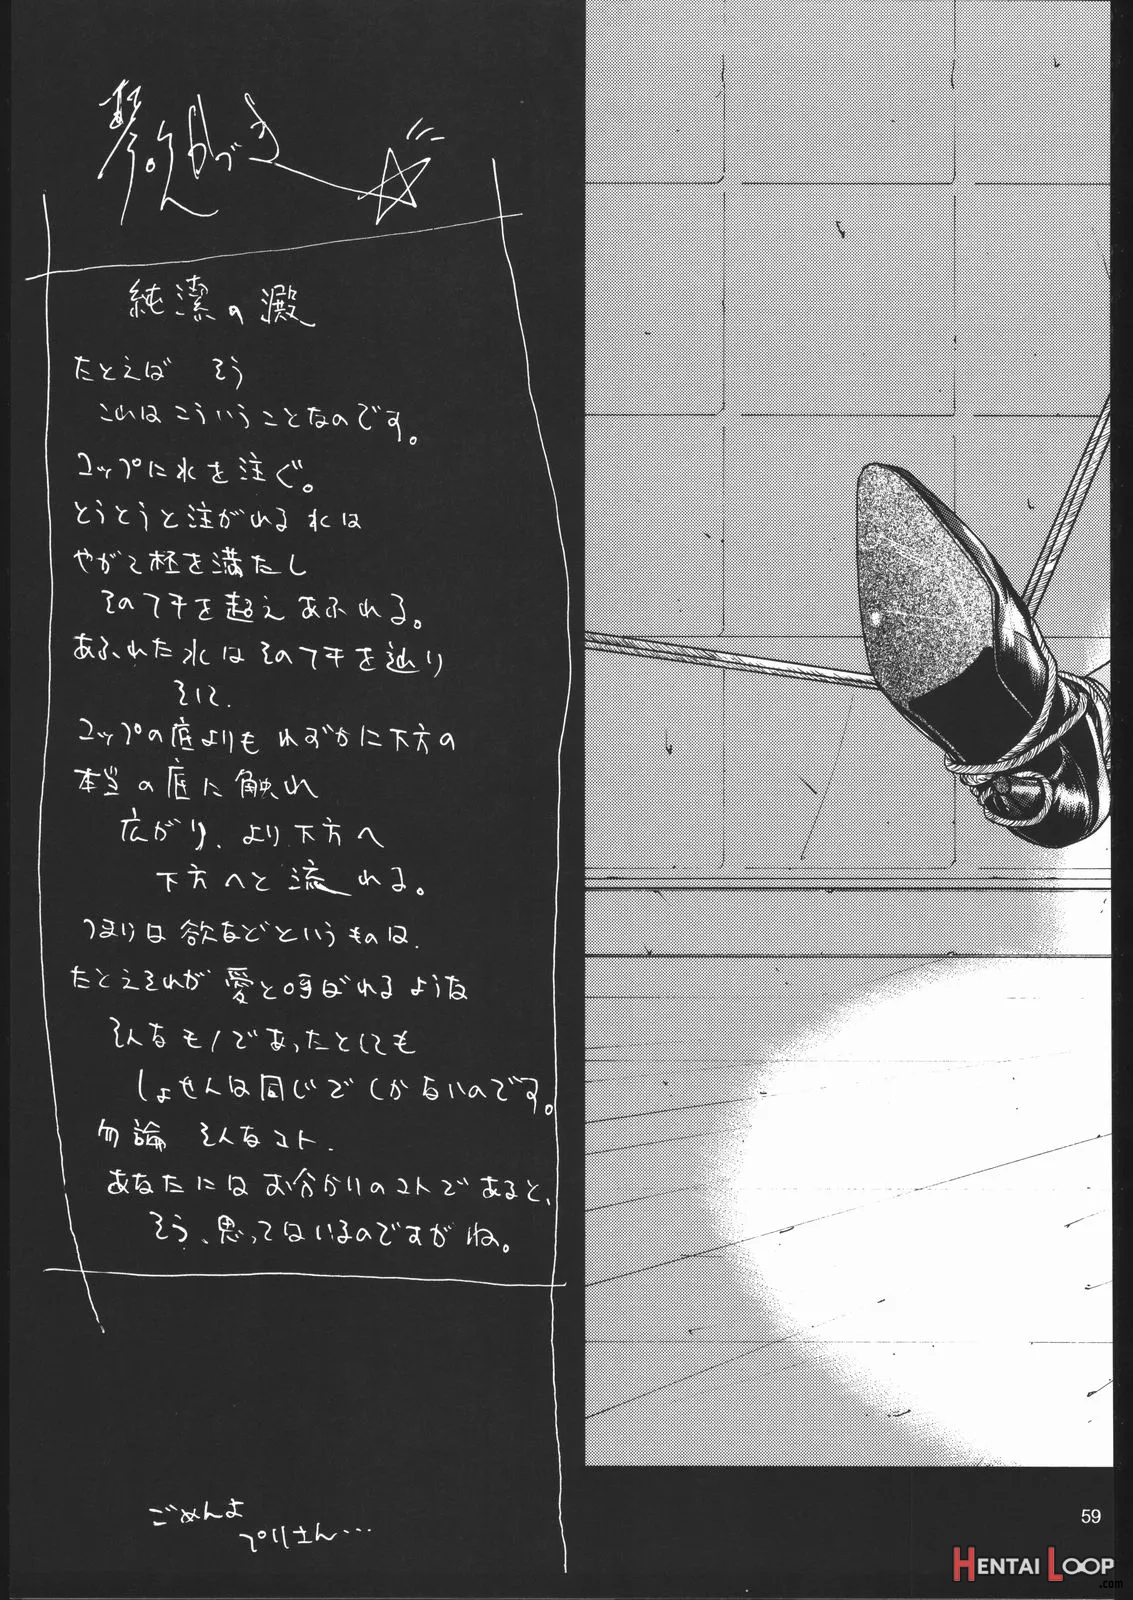 琴吹かづき
純潔の澱
たとえば そう
これはこういうことなのです。
コップに水を注ぐ。
とうとうと注がれる水は
やがて杯を満たし
そのフチを超えあふれる。
あふれた水はそのフチを辿り
そして.
コップの底よりもわずかに下方の
本当の底に触れ
広がり、より下方へ
下方へと流れる。
つまりは欲などというものは.
たとえそれが愛と呼ばれるような
そんなモノであったとしても
しょせんは同じでしかないのです。
勿論 そんなコト.
あなたにはお分かりのコトであると、
そう、思ってはいるのですがね。
ごめんよ
プリさん…
59
HENTAI LOOP
.com